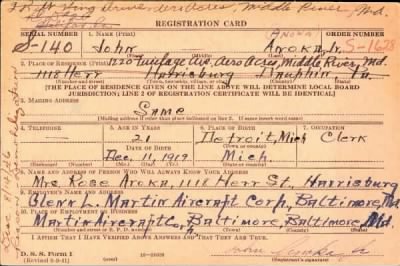 Drive, Aero Acres, Middle River, Md.
REGISTRATION CARD
SERIAL NUMBER 1. NAME (Print) ORDER NUMBER
S-140 John Anoka, Jr. S-1628
1220 Fuselage Ave, Aero Acres, Middle River, Md.
2. PLACE OF RESIDENCE (Print)
1118 Herr Harrisburg Dauphin Pa.
(Number and street) (Town, township, village, or city) (County) (State)
[THE PLACE OF RESIDENCE GIVEN ON THE LINE ABOVE WILL DETERMINE LOCAL BOARD
JURISDICTION; LINE 2 OF REGISTRATION CERTIFICATE WILL BE IDENTICAL.]
3. MAILING ADDRESS
Same
[Mailing address if other than place indicated on line 2. If same, insert word same]
4. TELEPHONE 5. AGE IN YEARS 6. PLACE OF BIRTH 7. OCCUPATION
21 Detroit, Mich Clerk
DATE OF BIRTH
Dec. 11, 1919 Mich.
8. NAME AND ADDRESS OF PERSON WHO WILL ALWAYS KNOW YOUR ADDRESS
Mrs Rose Anoka, 1118 Herr St., Harrisburg
9. EMPLOYER'S NAME AND ADDRESS
Glenn L. Martin Aircraft Corp, Baltimore, Md.
10. PLACE OF EMPLOYMENT OR BUSINESS
Martin Aircraft Corp, Baltimore, Baltimore, Md.
I AFFIRM THAT I HAVE VERIFIED ABOVE ANSWERS AND THAT THEY ARE TRUE.
D. S. S. Form 1